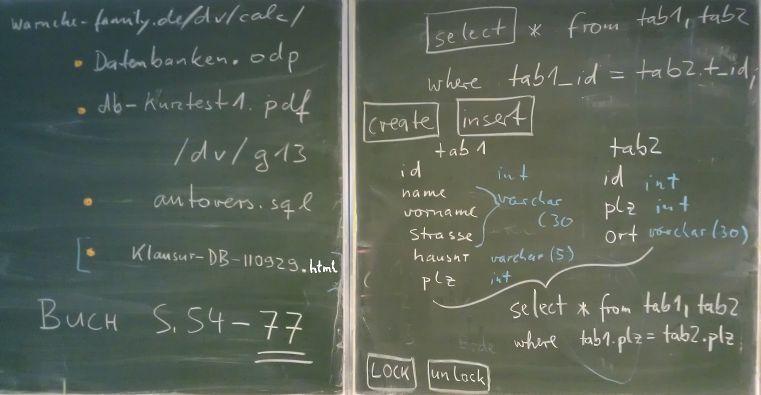 warncke-family.de/dv/calc/
• Datenbanken.odp
• db-Kurztest1.pdf
/dv/g13
• autovers.sql
• Klausur-DB-110929.html
BUCH S.54-77
select * from tab1, tab2
where tab1_id = tab2.t_id;
create insert
tab1
id int
name
vorname
strasse
varchar (30
hausnr varchar(5)
plz int
tab2
id int
plz int
ort varchar(30)
select * from tab1, tab2
where tab1.plz = tab2.plz;
LOCK unlock